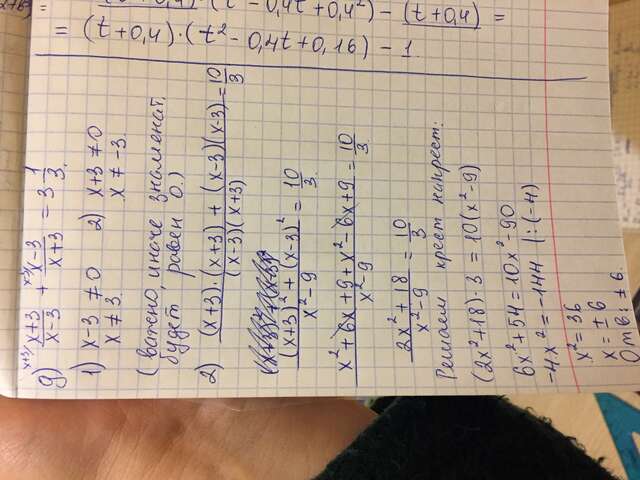 = (t+0,4)·(t² - 0,4t + 0,4²) - (t+0,4) =
= (t+0,4)·(t² - 0,4t + 0,16) - 1
g) x+3/ (x+3)/(x-3) + x-3/ (x-3)/(x+3) = 3 1/3
1) x-3 ≠ 0 2) x+3 ≠ 0
x ≠ 3. x ≠ -3.
(важно, иначе знаменат.
будет равен 0.)
2) ((x+3)·(x+3) + (x-3)(x-3))/((x-3)(x+3)) = 10/3
((x+3)² + (x-3)²)/(x²-9) = 10/3
(x² + 6x + 9 + x² - 6x + 9)/(x²-9) = 10/3
(2x² + 18)/(x²-9) = 10/3
Решаем крест накрест:
(2x² + 18)·3 = 10(x² - 9)
6x² + 54 = 10x² - 90
-4x² = -144 |:(-4)
x² = 36
x = ± 6
Отв: ± 6.